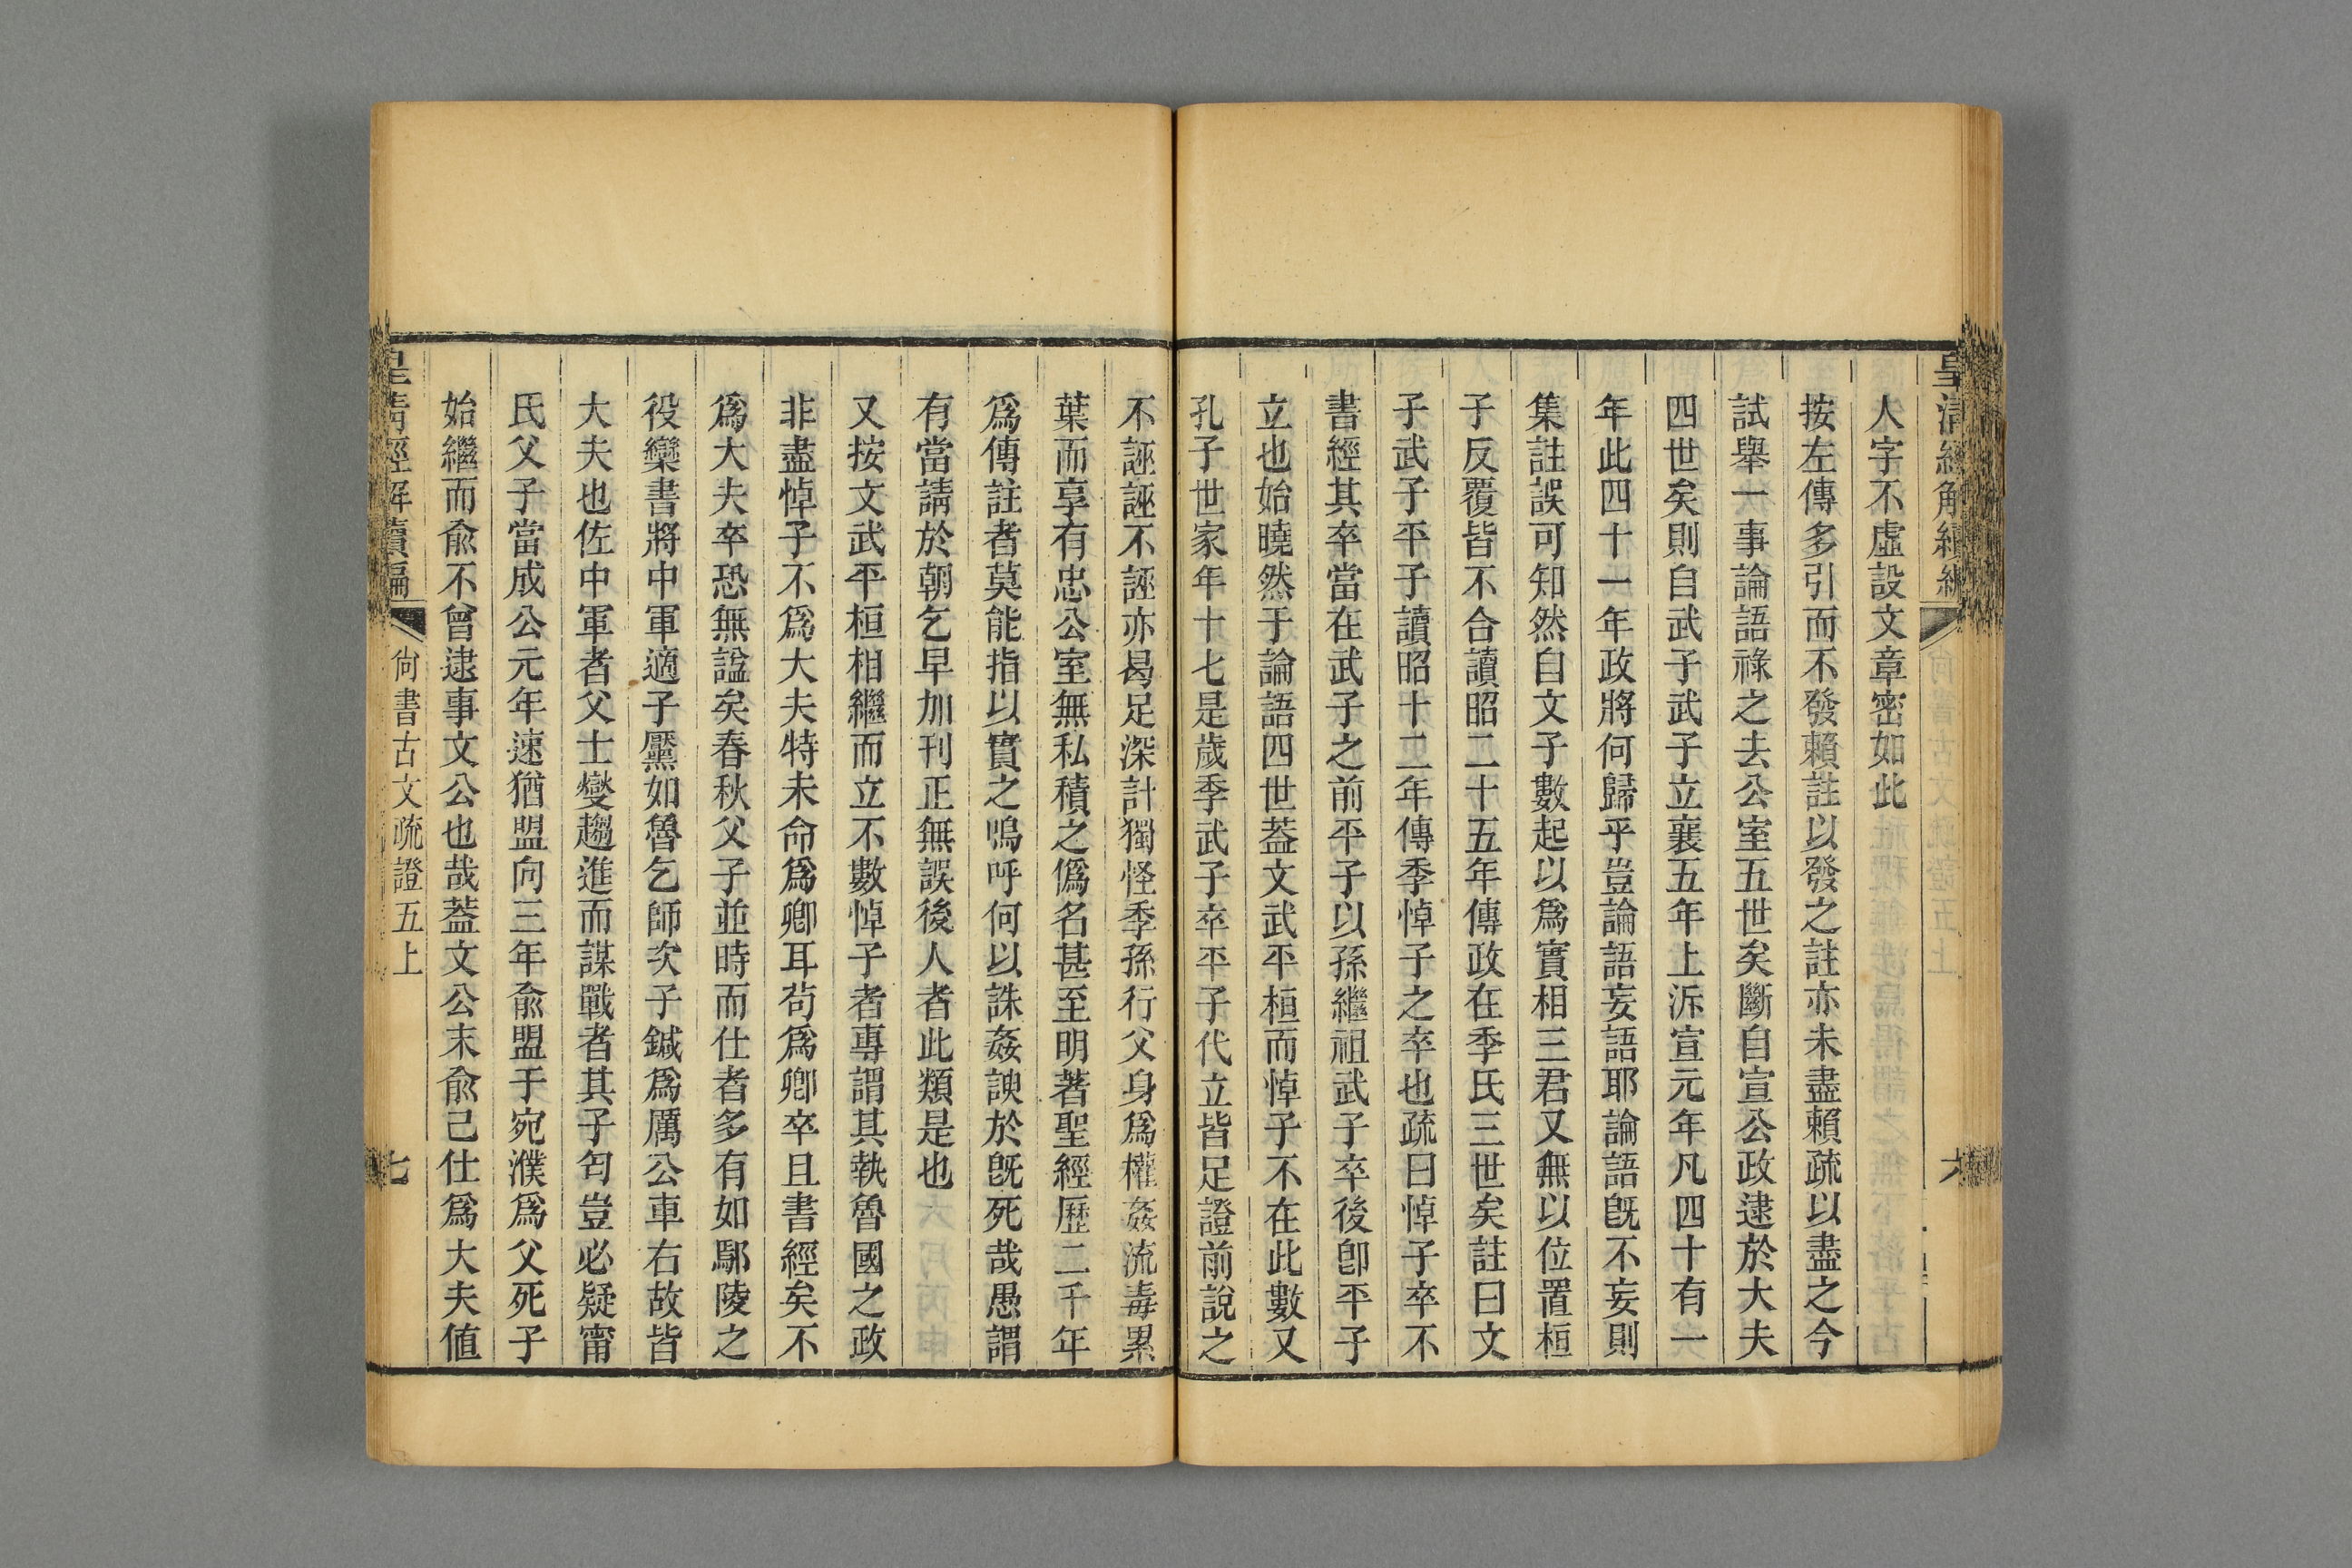 皇清經解續編
六
人字不虛設文章密如此
按左傳多引而不發賴註以發之註亦未盡賴疏以盡之今
試舉一事論語祿之去公室五世矣斷自宣公政逮於大夫
四世矣則自武子武子立襄五年上泝宣元年凡四十有一
年此四十一年政將何歸乎豈論語妄語耶論語旣不妄則
集註誤可知然自文子數起以爲實相三君又無以位置桓
子反覆皆不合讀昭二十五年傳政在季氏三世矣註曰文
子武子平子讀昭十二年傳季悼子之卒也疏曰悼子卒不
書經其卒當在武子之前平子以孫繼祖武子卒後卽平子
立也始曉然于論語四世葢文武平桓而悼子不在此數又
孔子世家年十七是歲季武子卒平子代立皆足證前說之
不誣誣不誣亦曷足深計獨怪季孫行父身爲權姦流毒累
葉而享有忠公室無私積之僞名甚至明著聖經歷二千年
爲傳註者莫能指以實之嗚呼何以誅姦諛於旣死哉愚謂
有當請於朝乞早加刊正無誤後人者此類是也
又按文武平桓相繼而立不數悼子者專謂其執魯國之政
非盡悼子不爲大夫特未命爲卿耳苟爲卿卒且書經矣不
爲大夫卒恐無諡矣春秋父子並時而仕者多有如鄢陵之
役欒書將中軍適子黶如魯乞師次子鍼爲厲公車右故皆
大夫也佐中軍者父士燮趨進而謀戰者其子匄豈必疑甯
氏父子當成公元年速猶盟向三年兪盟于宛濮爲父死子
始繼而兪不曾逮事文公也哉葢文公末兪已仕爲大夫値
皇清經解續編
尙書古文疏證五上
七